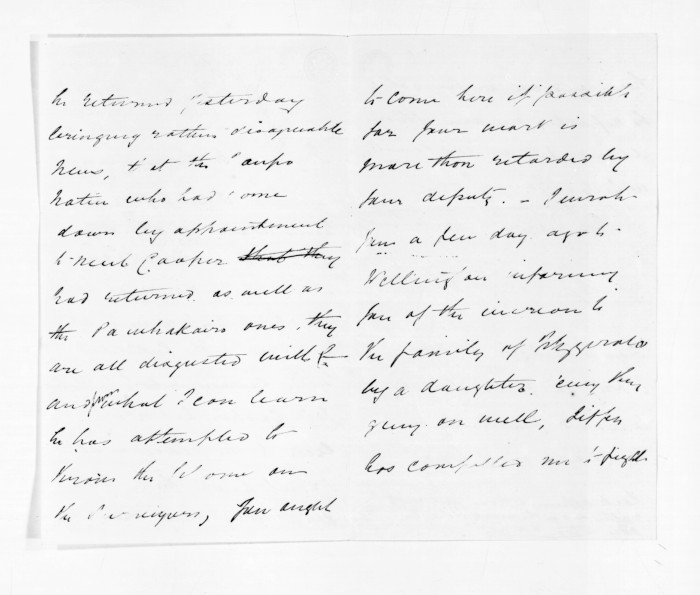 he returned yesterday
bringing rather disagreeable
news, that the Taupo
natives who had come
down by appointment
to meet Cooper that they
had returned as well as
the Pawhakairo ones, they
are all disgusted with
and from what I can learn
he has attempted to
throw the blame on
the Du you ought
to come here if possible
for your work is
more than retarded by
your deputy. - I wrote
you a few day ago to
Wellington informing
you of the increase to
the family of Fitzgerald
by a daughter, every thing
going on well,
has compelled me to